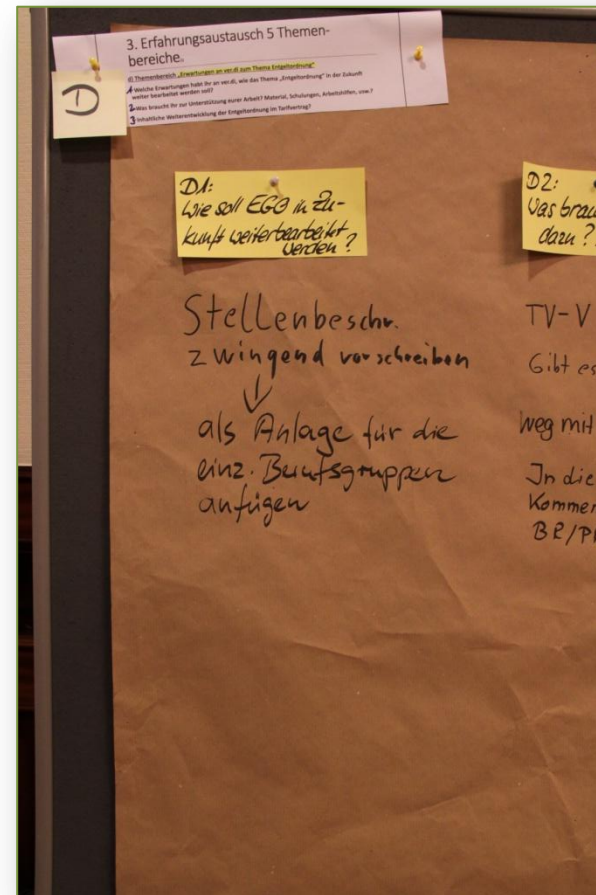 3. Erfahrungsaustausch 5 Themen-
bereiche..
d) Themenbereich „Erwartungen an ver.di zum Thema Entgeltordnung"
1 Welche Erwartungen habt ihr an ver.di, wie das Thema „Entgeltordnung" in der Zukunft
weiter bearbeitet werden soll?
2 Was braucht ihr zur Unterstützung eurer Arbeit? Material, Schulungen, Arbeitshilfen, usw.?
3 Inhaltliche Weiterentwicklung der Entgeltordnung im Tarifvertrag?
D
D1:
Wie soll EGO in Zu-
kunft weiterbearbeitet
werden?
Stellenbeschr.
zwingend vorschreiben
als Anlage für die
einz. Berufsgruppen
anfügen
D2:
Was brau
dazu?
TV-V
Gibt es
weg mit
In die
Kommen
BR/P